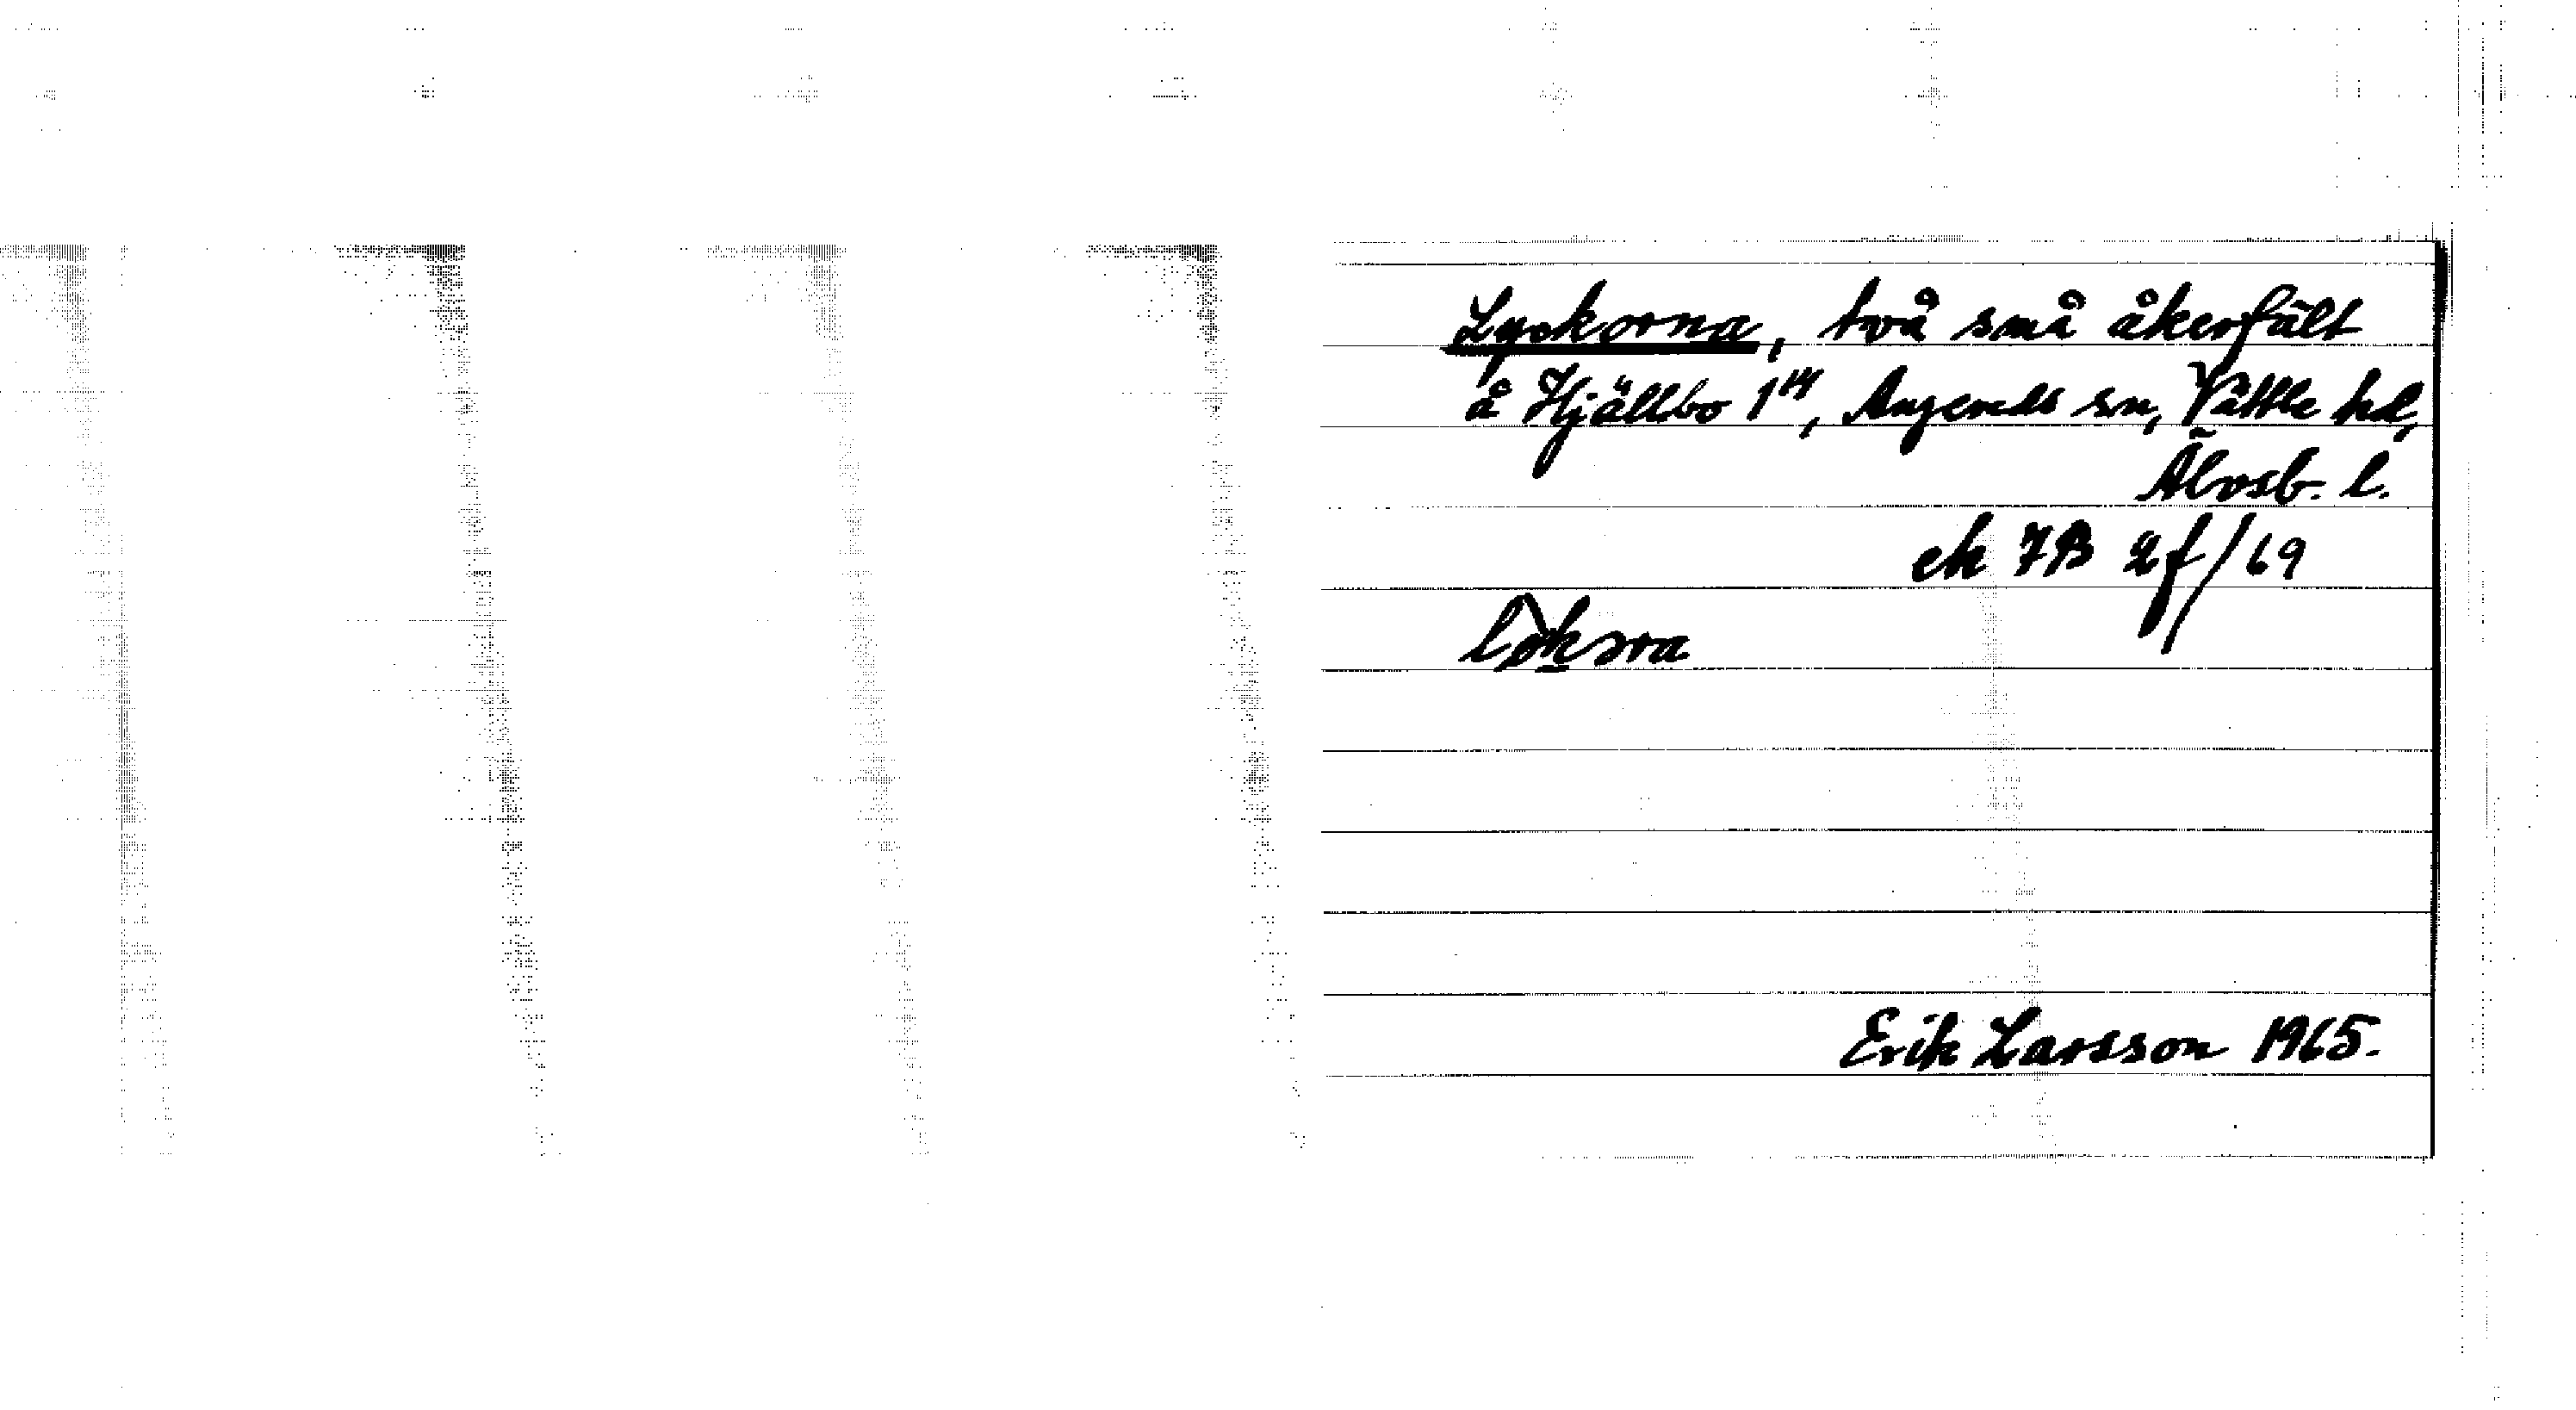 Lyckorna, två små åkerfält
å Hjällbo 1¹⁴, Angereds sn, Vättle hd,
Älvsb. l.
ek 7B 2f/69
Erik Larsson 1965.